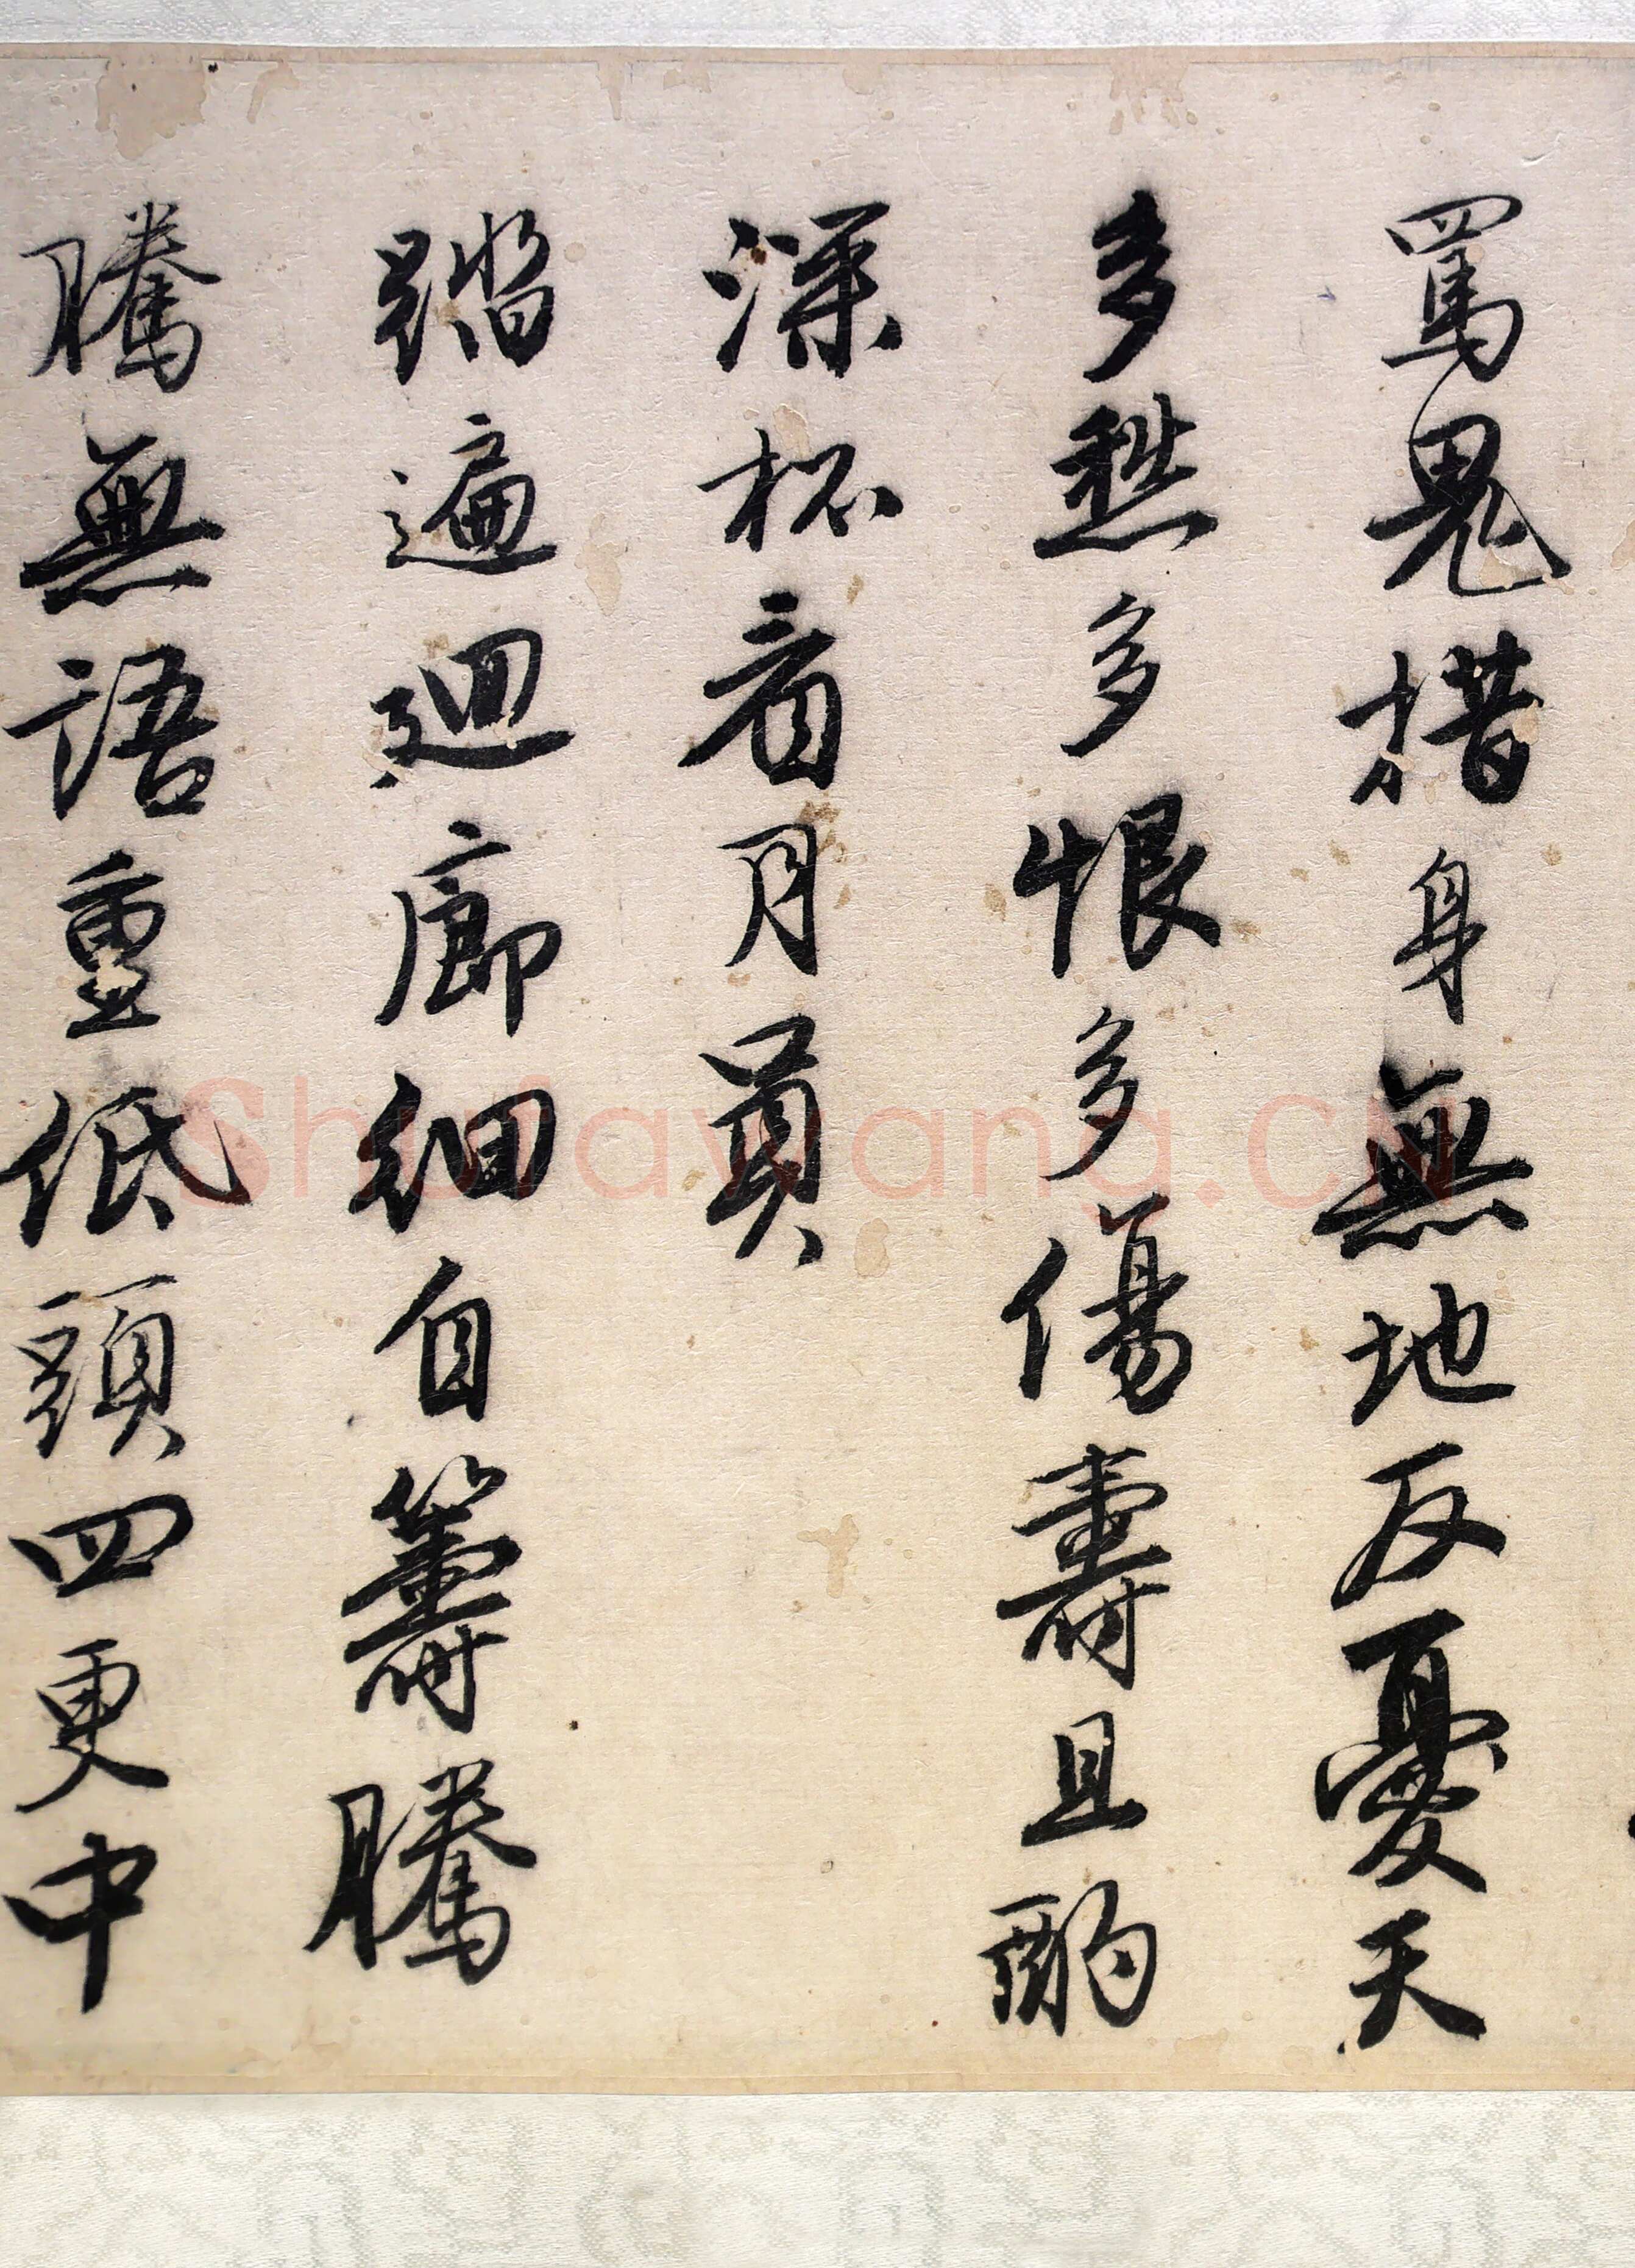 罵鬼措身無地反憂天
多愁多恨多傷壽且酌
深杯看月員
踏遍迴廊細自籌騰
騰無語重低頭四更中
Shufawang.CN